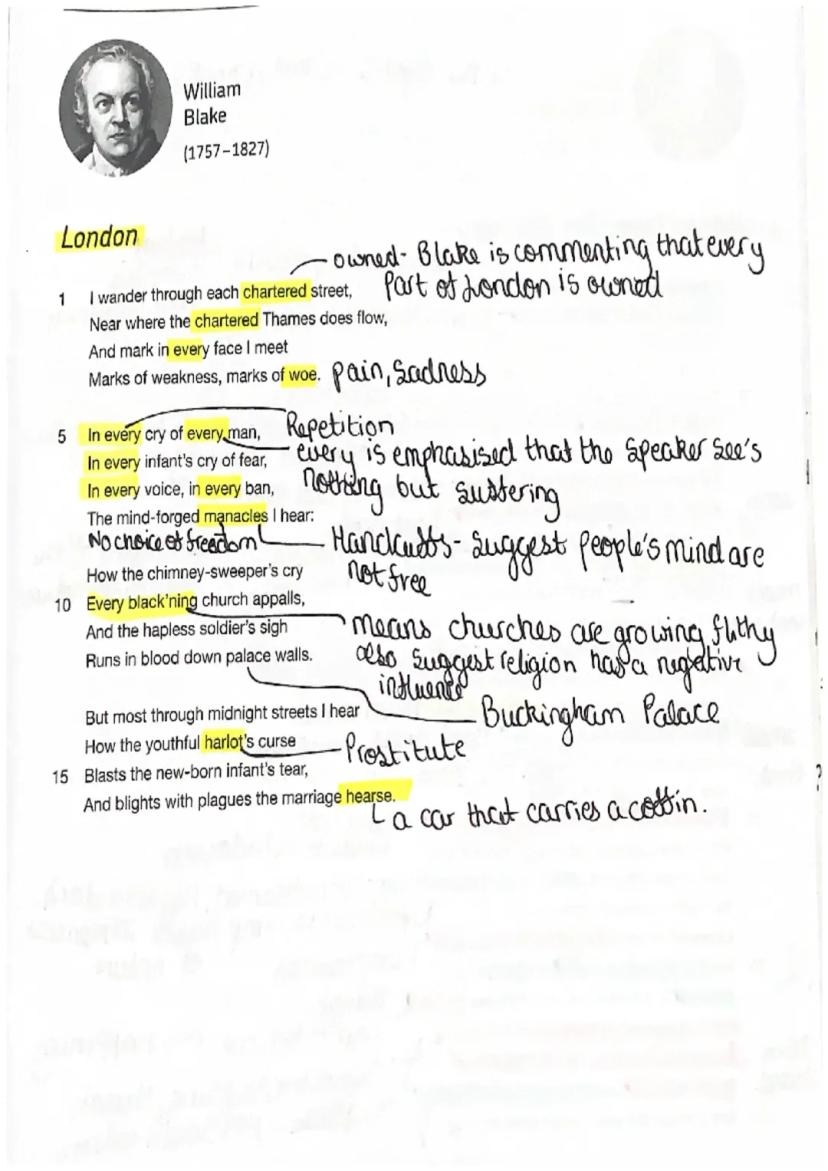 William
Blake
(1757–1827)
London
owned- Blake is commenting that every
Part of London is owned
1 I wander through each chartered street,
Near where the chartered Thames does flow,
And mark in every face I meet
Marks of weakness, marks of woe.
pain, Sadness
5 In every cry of every man,
Repetition
In every infant's cry of fear,
every is emphasised that the speaker see's
nothing but suffering
In every voice, in every ban,
The mind-forged manacles I hear:
No choice of freedom
Handcuffs- suggest people's mind are
not free
How the chimney-sweeper's cry
10 Every black'ning church appalls,
And the hapless soldier's sigh
means churches are growing filthy
also suggest religion has a negative
influence
Runs in blood down palace walls.
Buckingham Palace
But most through midnight streets I hear
How the youthful harlot's curse
Prostitute
15 Blasts the new-born infant's tear,
And blights with plagues the marriage hearse.
a car that carries a coffin.
?